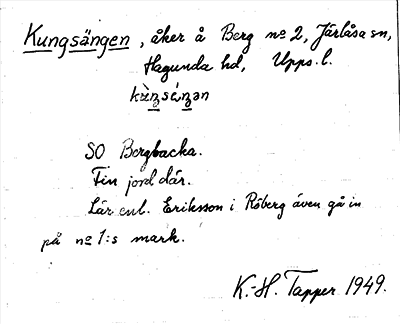 Kungsängen, åker å Berg nº 2, Järlåsa sn,
Hagunda hd, Upps. l.
SO Bergbacka.
Fin jord där.
Lär enl. Eriksson i Röberg även gå in
på nº 1:s mark.
K.-H. Tapper 1949.